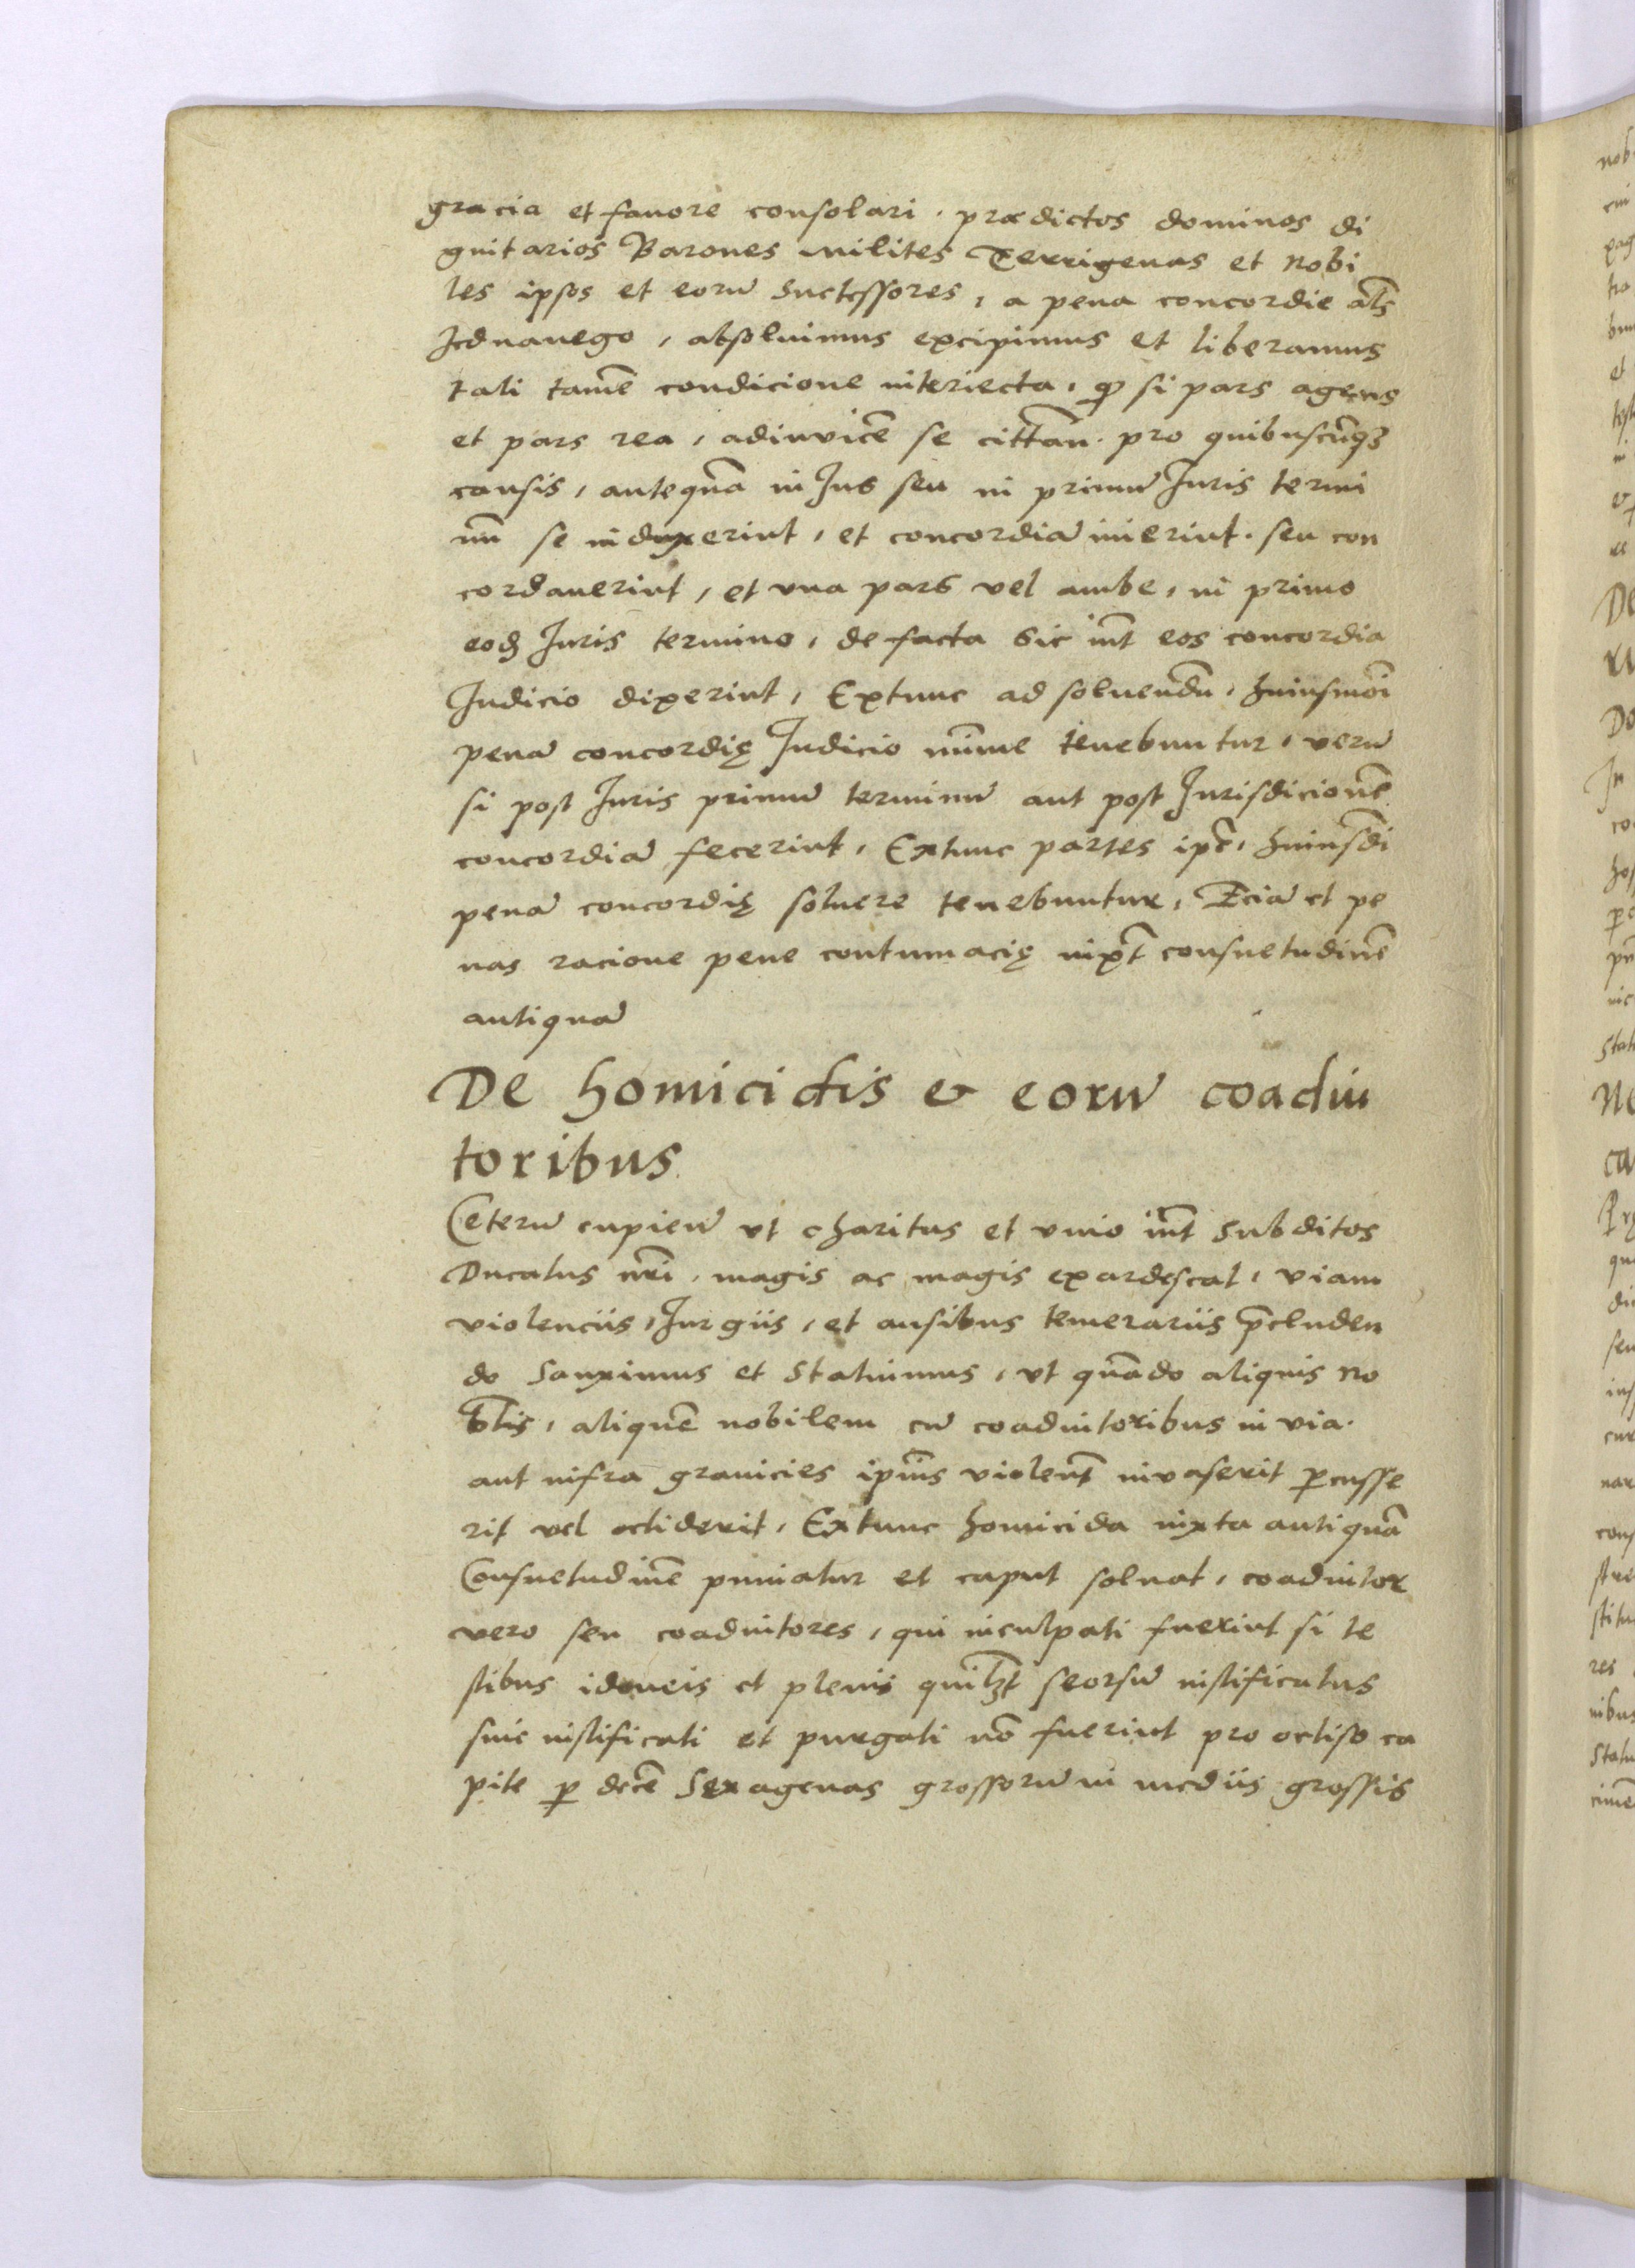 gracia et fauore consolari · prædictos dominos di
gnitarios Barones milites Terrigenas et Nobi
les ipsos et eorū Successores, a pena concordie al̄s
Jednanego, absoluimus excipimus et liberamus
tali tamē condicione interiecta, qȝ si pars agens
et pars rea, adinvicē se cittān. pro quibuscūqȝ
causis, antequā in Jus seu in primū Juris termi
nū se induxerint, et concordiā inierint. seu con
cordauerint, et vna pars vel ambe, in primo
eodȝ Juris termino, de facta sic int̄ eos concordia
Judicio dixerint, Extunc ad soluendū, huiusmōi
penā concordię Judicio mīme tenebuntur, verū
si post Juris primū terminū aut post Jurisdicionē
concordiā fecerint, Extunc partes ip̄e, huiusd̄i
penā concordię soluere tenebuntur, Eciā et pe
nas racione pene contumacię iuxt̄ consuetudinē
antiquā
De homicidis & eorū coadiu
toribus
Ceterū cupien̄ vt charitas et vnio int̄ Subditos
Ducatus nr̄i, magis ac magis exardescat, viam
violenciis, Jurgiis, et ausibus temerariis p̄cluden
do Sanximus et Statuimus, vt quādo aliquis No
bl̄is, aliquē nobilem cū coadiutoribus in via.
aut infra granicies ip̄ius violent̄ invaserit ꝑcusse
rit vel occiderit, Extunc homicida iuxta antiquā
Consuetudinē puniatur et caput soluat, coadiutor
vero seu coadiutores, qui inculpati fuerint si te
stibus idoneis et plenis quilȝt seorsū iustificatus
siue iustificati et purgati nō fuerint pro occiso ca
pite ꝑ decē Sexagenas grossorū in mediis grossis